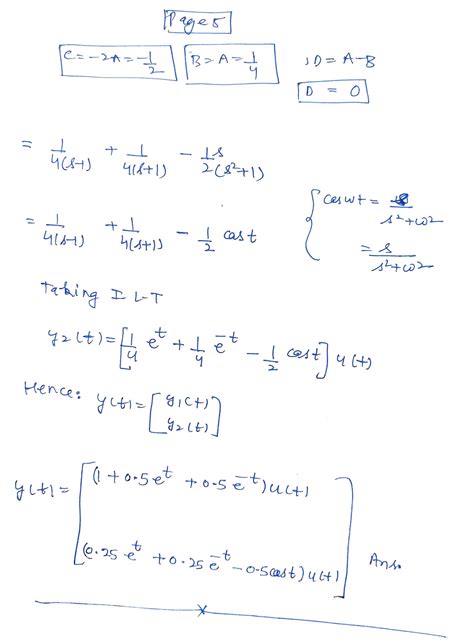 Page 5
C = -2A = -1/2 B = A = 1/4 , D = A-B
D = 0
= 1/4(s-1) + 1/4(s+1) - 1s/2(s²+1)
cos wt = s/s²+ω²
= 1/4(s-1) + 1/4(s+1) - 1/2 cos t
= s/s²+ω²
Taking I L-T
y2(t) = [1/4 e^t + 1/4 e^-t - 1/2 cost] u(t)
Hence: y(t) = [y1(t)
y2(t)]
y(t) = [(1+0.5e^t + 0.5e^-t)u(t)
(0.25 e^t + 0.25 e^-t - 0.5cost) u(t)] Ans.
x